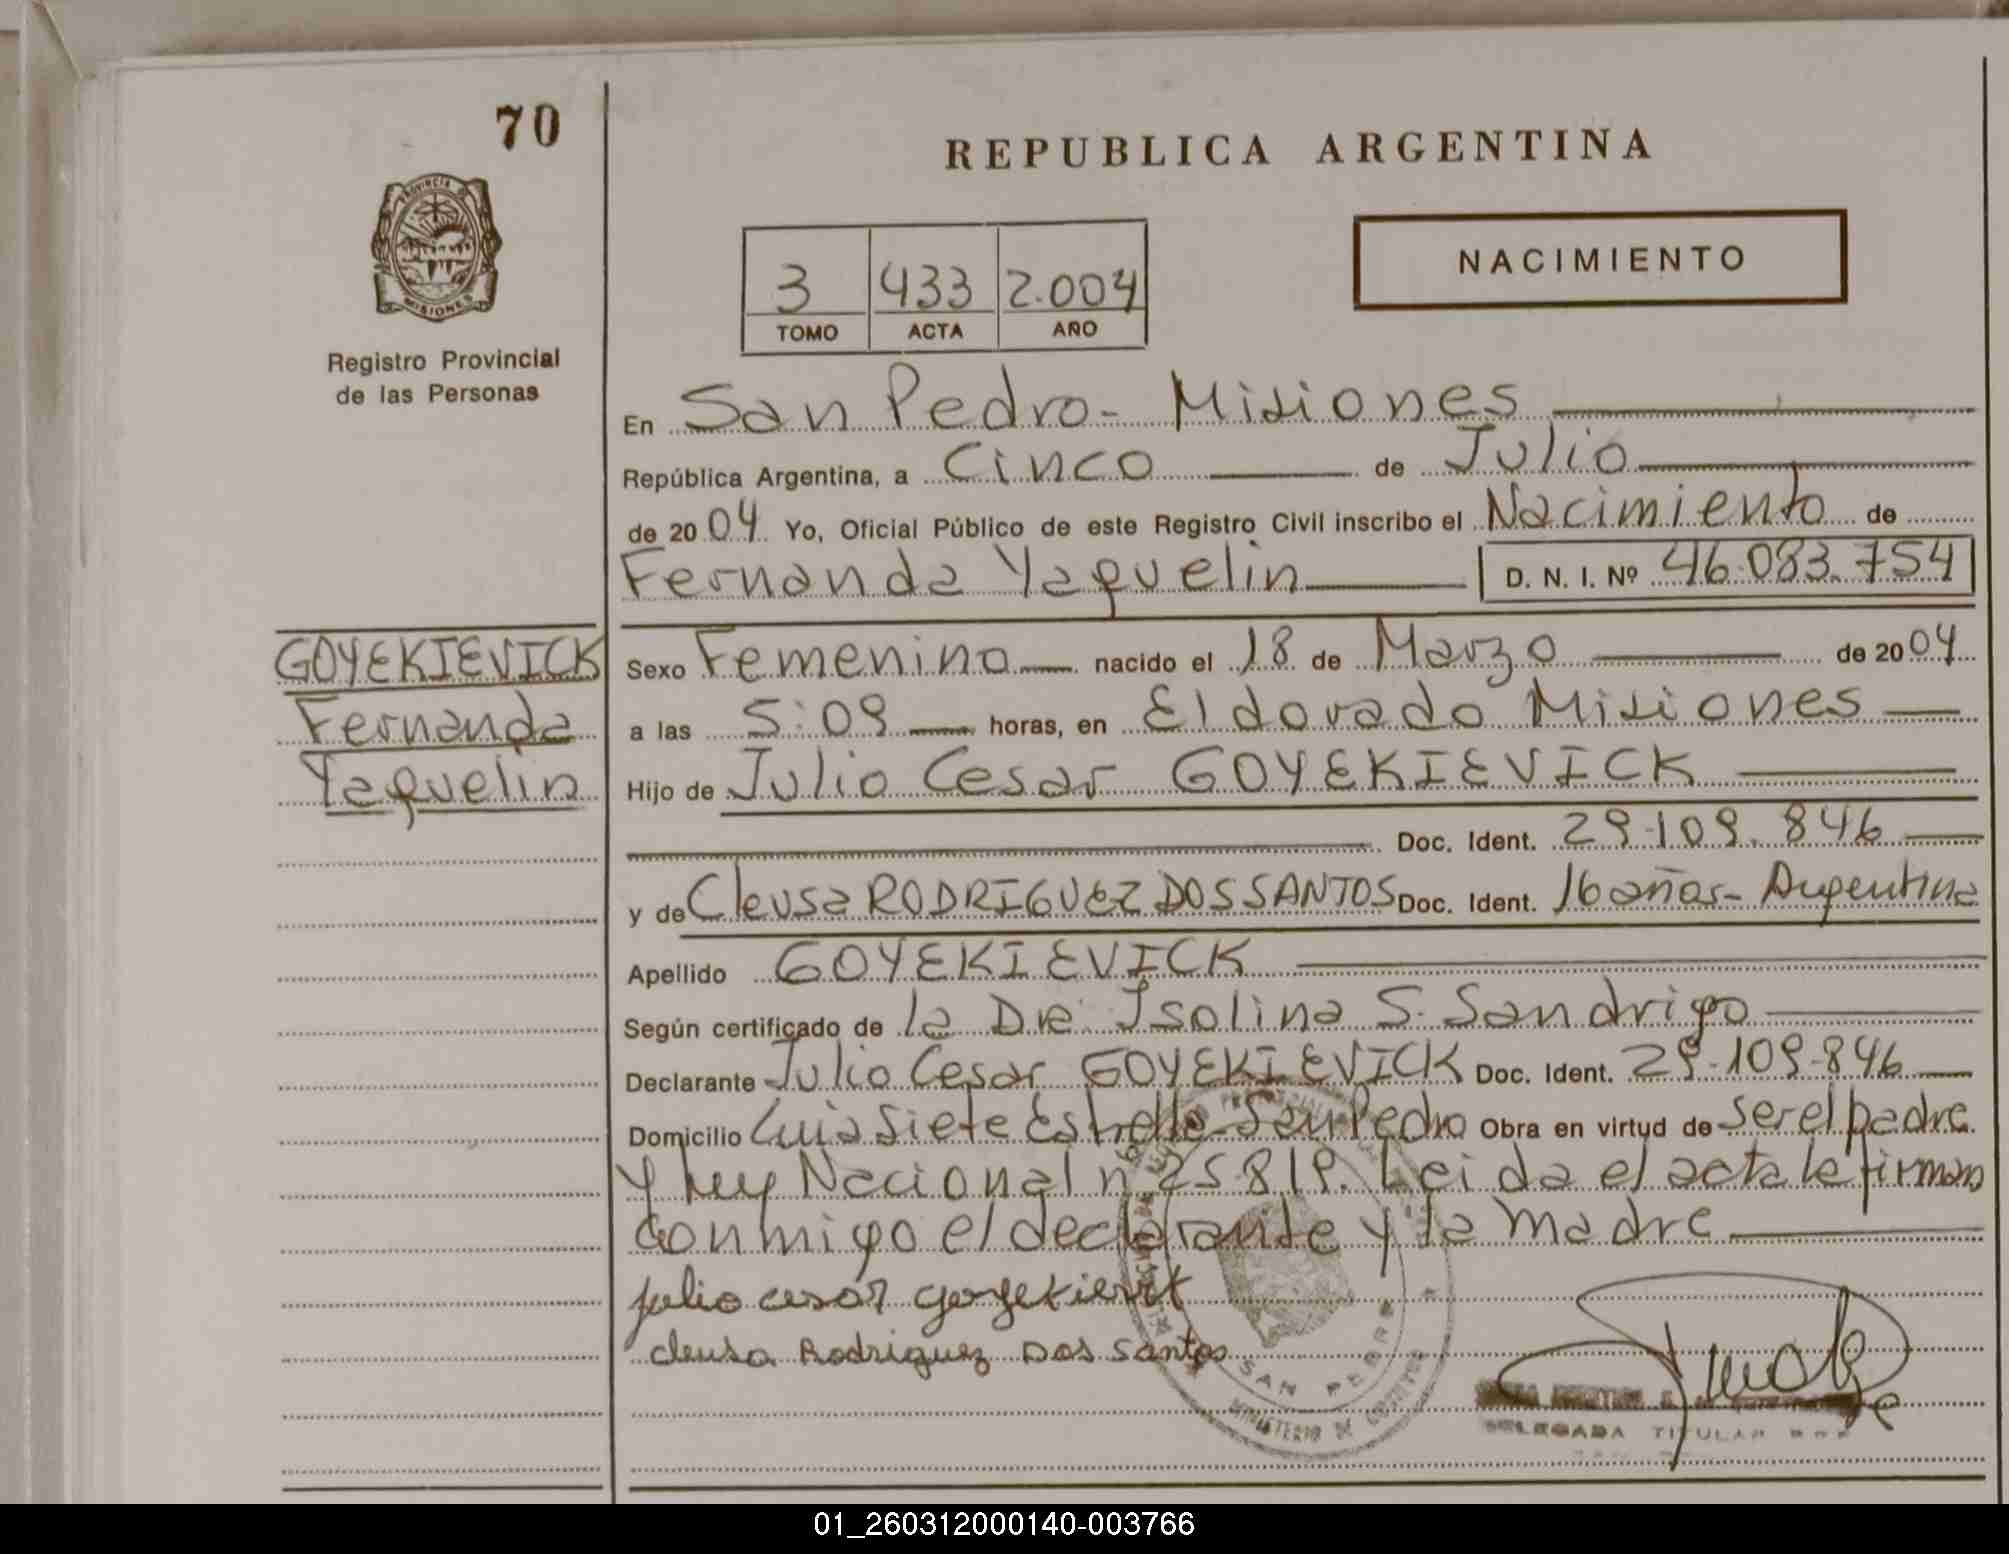 70
REPUBLICA ARGENTINA
PROVINCIA DE
MISIONES
Registro Provincial
de las Personas
NACIMIENTO
3 433 2.004
TOMO ACTA AÑO
En San Pedro - Misiones
República Argentina, a Cinco de Julio
de 2004 Yo, Oficial Público de este Registro Civil inscribo el Nacimiento de
Fernanda Yaquelin D. N. I. Nº 46.083.754
GOYEKIEVICK
Fernanda
Yaquelin
Sexo Femenino nacido el 18 de Marzo de 2004
a las 5:09 horas, en Eldorado Misiones
Hijo de Julio Cesar GOYEKIEVICK
Doc. Ident. 29.109.846
y de Cleusa RODRIGUEZ DOS SANTOS Doc. Ident. 16 años - Argentina
Apellido GOYEKIEVICK
Según certificado de la Dra Isolina S. Sandrigo
Declarante Julio Cesar GOYEKIEVICK Doc. Ident. 29.109.846
Domicilio Siete Estrellas - San Pedro Obra en virtud de ser el padre
y Ley Nacional nº 25.819. Leida el acta la firman
conmigo el declarante y la madre
julio cesar
cleusa Rodriguez Dos Santos
SAN PEDRO
MINISTERIO DE GOBIERNO
DELEGADA TITULAR
01_260312000140-003766